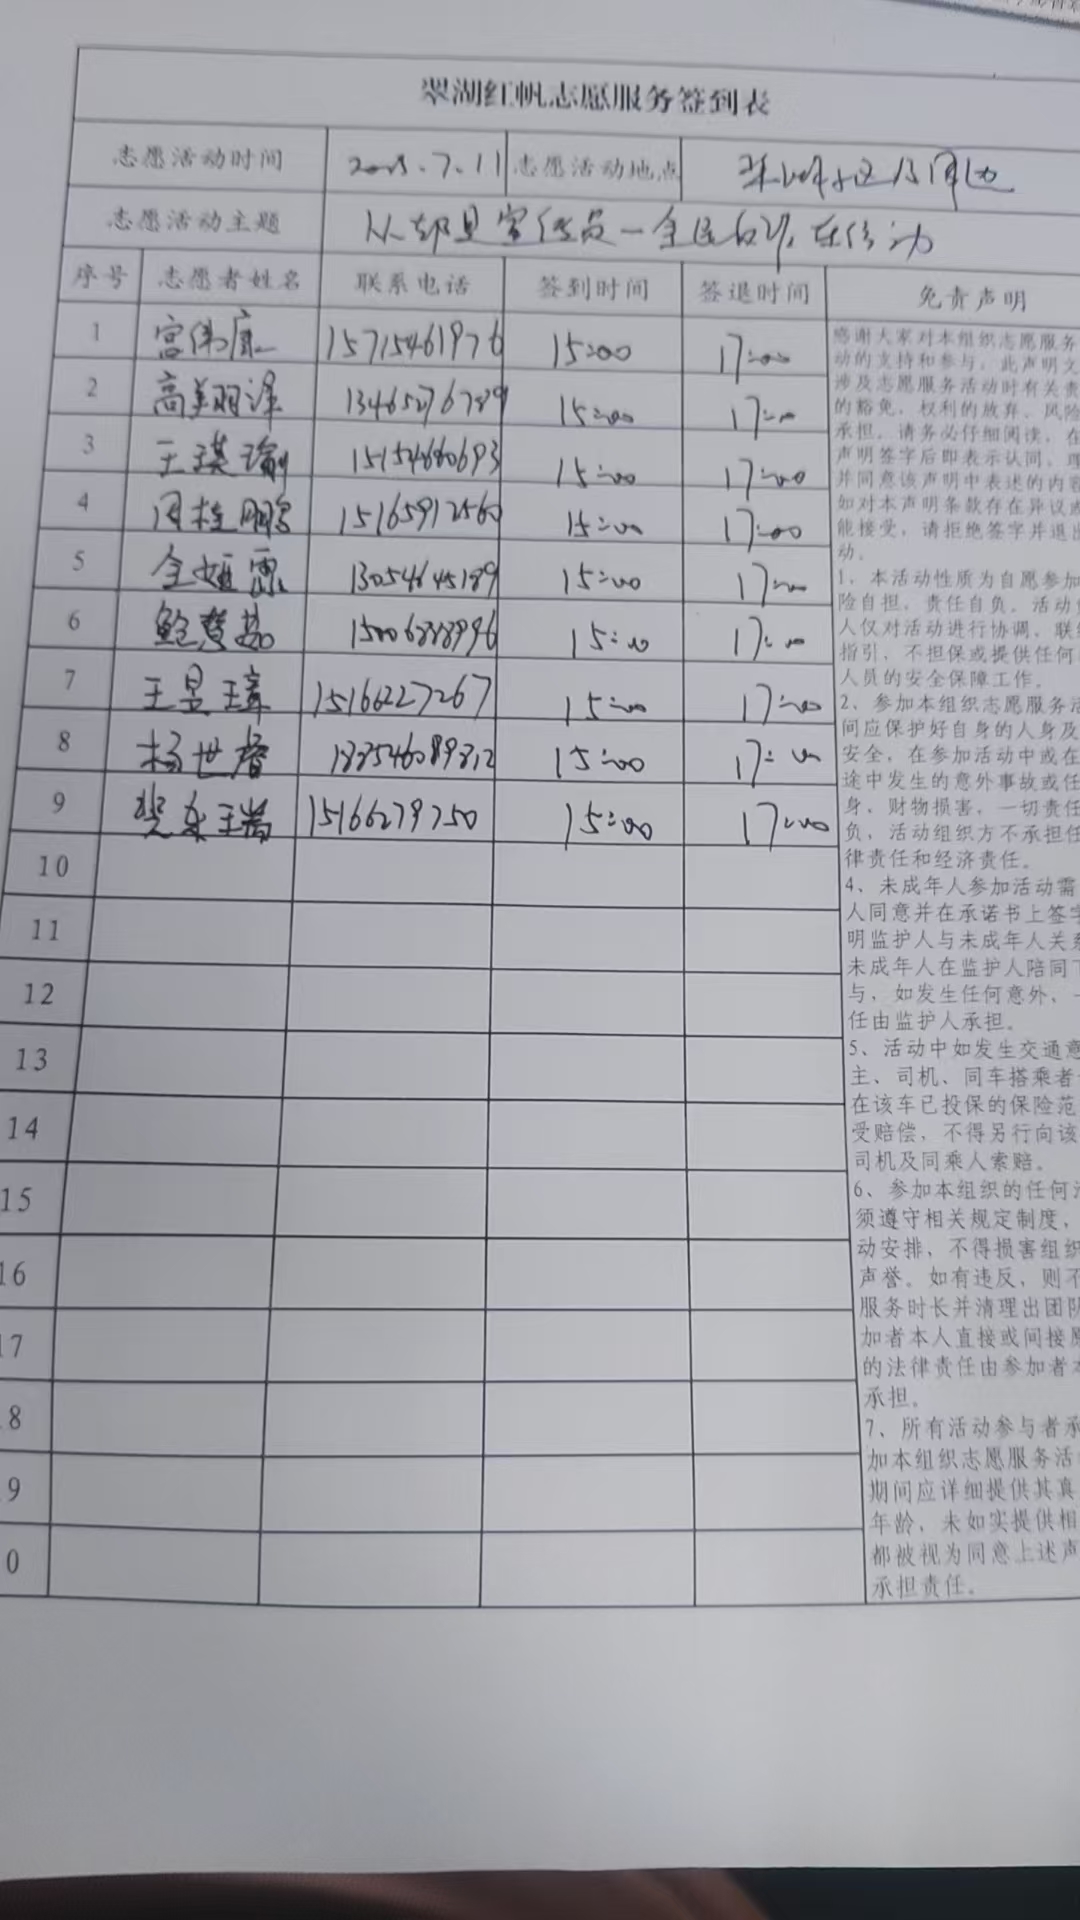 翠湖红帆志愿服务签到表
志愿活动时间 7.11 志愿活动地点
志愿活动主题
序号 志愿者姓名 联系电话 签到时间 签退时间 免责声明
1 宫伟康 15715461976 15:00 17:00
2 高美丽泽 13465276789 15:00 17:00
3 王琪瑜 15154680693 15:00 17:00
4 周桂鹏 15165912560 15:00 17:00
5 13054645189 15:00 17:00
6 15006888996 15:00 17:00
7 王昱璋 15166227267 15:00 17:00
8 杨世睿 15:00 17:00
9 15166279750 15:00 17:00
10
11
12
13
14
15
16
17
8
9
0
感谢大家对本组织志愿服务
动的支持和参与，此声明文
涉及志愿服务活动时有关责
的豁免，权利的放弃、风险
承担，请务必仔细阅读，在
声明签字后即表示认同，理
并同意该声明中表述的内容
如对本声明条款存在异议或
能接受，请拒绝签字并退出
动。
1、本活动性质为自愿参加
险自担，责任自负。活动
人仅对活动进行协调、联络
指引，不担保或提供任何
人员的安全保障工作。
2、参加本组织志愿服务活
间应保护好自身的人身及
安全，在参加活动中或在
途中发生的意外事故或任
身，财物损害，一切责任
负，活动组织方不承担任
律责任和经济责任。
4、未成年人参加活动需
人同意并在承诺书上签字
明监护人与未成年人关系
未成年人在监护人陪同下
与，如发生任何意外，一
任由监护人承担。
5、活动中如发生交通意
主、司机、同车搭乘者
在该车已投保的保险范
受赔偿，不得另行向该
司机及同乘人索赔。
6、参加本组织的任何活
须遵守相关规定制度，
动安排，不得损害组织
声誉。如有违反，则不
服务时长并清理出团队
加者本人直接或间接原
的法律责任由参加者本
承担。
7、所有活动参与者承
加本组织志愿服务活
期间应详细提供其真
年龄，未如实提供相
都被视为同意上述声
承担责任。